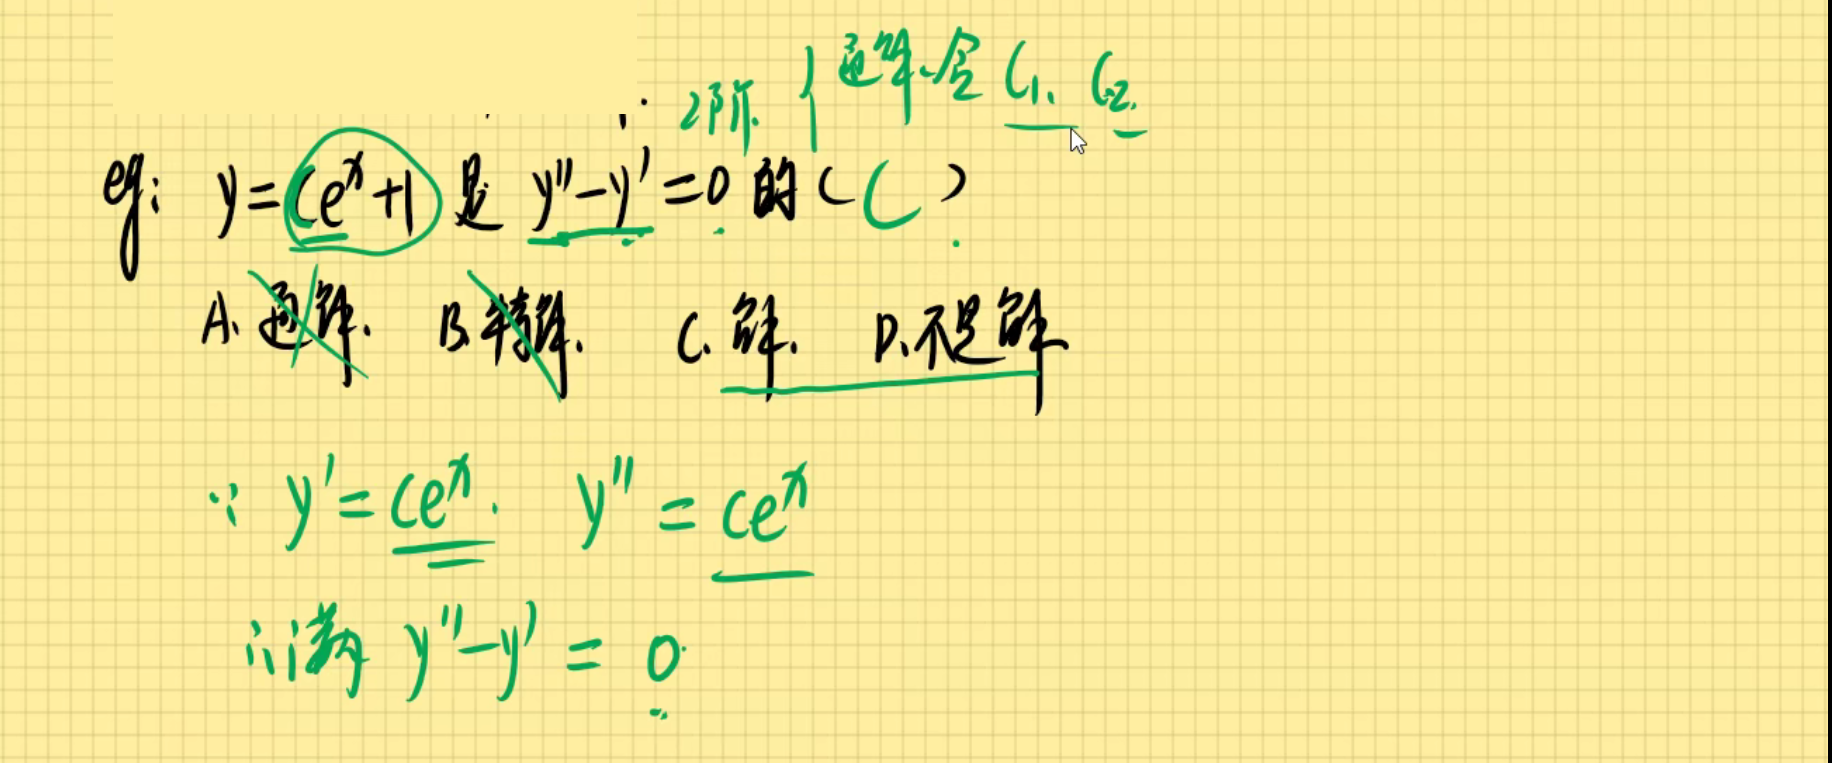 2阶 { 通解.含 C₁、C₂.
eg: y=Ce^x+1 是 y''-y'=0 的 ( C )
A. 通解. B. 特解. C. 解. D. 不是解
∵ y'=Ce^x. y''=Ce^x
∴ 满足 y''-y'=0